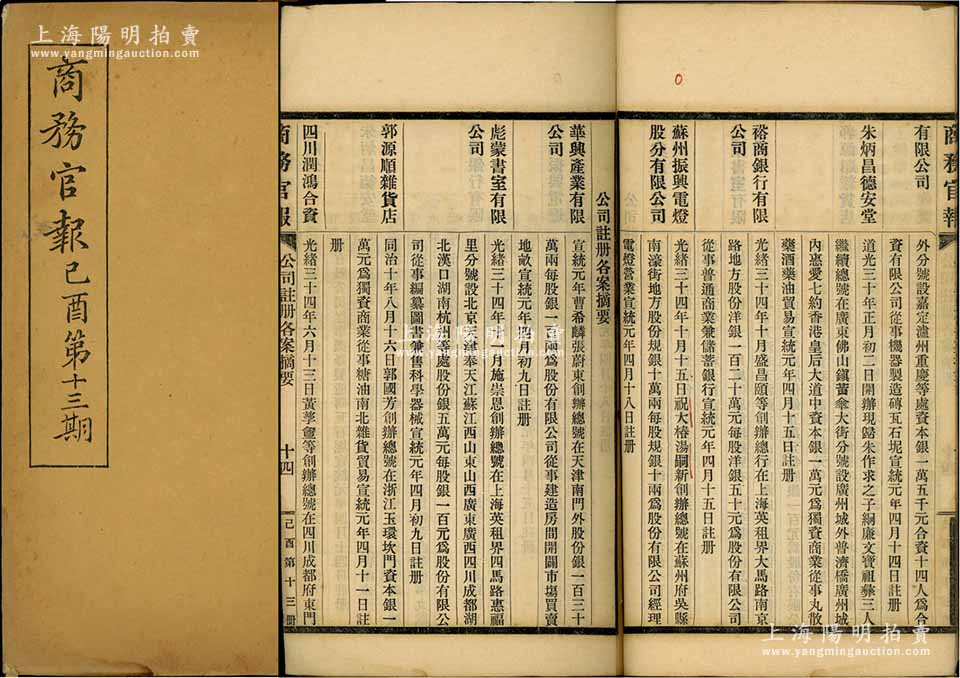 上海陽明拍賣
www.yangmingauction.com
商務官報己酉第十三期
商務官報
有限公司
外分號設嘉定瀘州重慶等處資本銀一萬五千元合資十四人爲合
資有限公司從事機器製造磚瓦石坭宣統元年四月十四日註册
朱炳昌德安堂
道光三十年正月初二日開辦現歸朱作求之子綱廉文寶祖彝三人
繼續總號在廣東佛山鎭大街分號設廣州城外普濟橋廣州城
內惠愛七約香港皇后大道中資本銀一萬元爲獨資商業從事丸散
藥酒藥油貿易宣統元年四月十五日註册
裕商銀行有限
公司
光緒三十四年十月盛昌頤等創辦總行在上海英租界大馬路南京
路地方股份洋銀一百二十萬元每股洋銀五十元爲股份有限公司
從事普通商業兼儲蓄銀行宣統元年四月十五日註册
蘇州振興電燈
股分有限公司
光緒三十四年十月十五日祝大椿湯嗣新創辦總號在蘇州府吳縣
南濠街地方股份規銀十萬兩每股規銀十兩爲股份有限公司經理
電燈營業宣統元年四月十八日註册
公司註册各案摘要
華興產業有限
公司
宣統元年曹希麟張蔚東創辦總號在天津南門外股份銀一百三十
萬兩每股銀一百兩爲股份有限公司從事建造房間開闢市塲買賣
地畝宣統元年四月初九日註册
彪蒙書室有限
公司
光緒三十四年十一月施崇恩創辦總號在上海英租界四馬路惠福
里分號設北京天津奉天江蘇江西山東山西廣東廣西四川成都湖
北漢口湖南杭州等處股份銀五萬元每股銀一百元爲股份有限公
司從事編纂圖書兼售科學器械宣統元年四月初九日註册
郭源順雜貨店
同治十年八月十六日郭國芳創辦總號在浙江玉環坎門資本銀一
萬元爲獨資商業從事糖油南北雜貨貿易宣統元年四月十一日註
册
四川潤鴻合資
光緒三十四年六月十三日黃等創辦總號在四川成都府東門
商務官報
公司註册各案摘要
十四
己酉第十三册
上海陽明拍賣
www.yangmingauction.com
上海陽明拍賣
www.yangmingauction.com